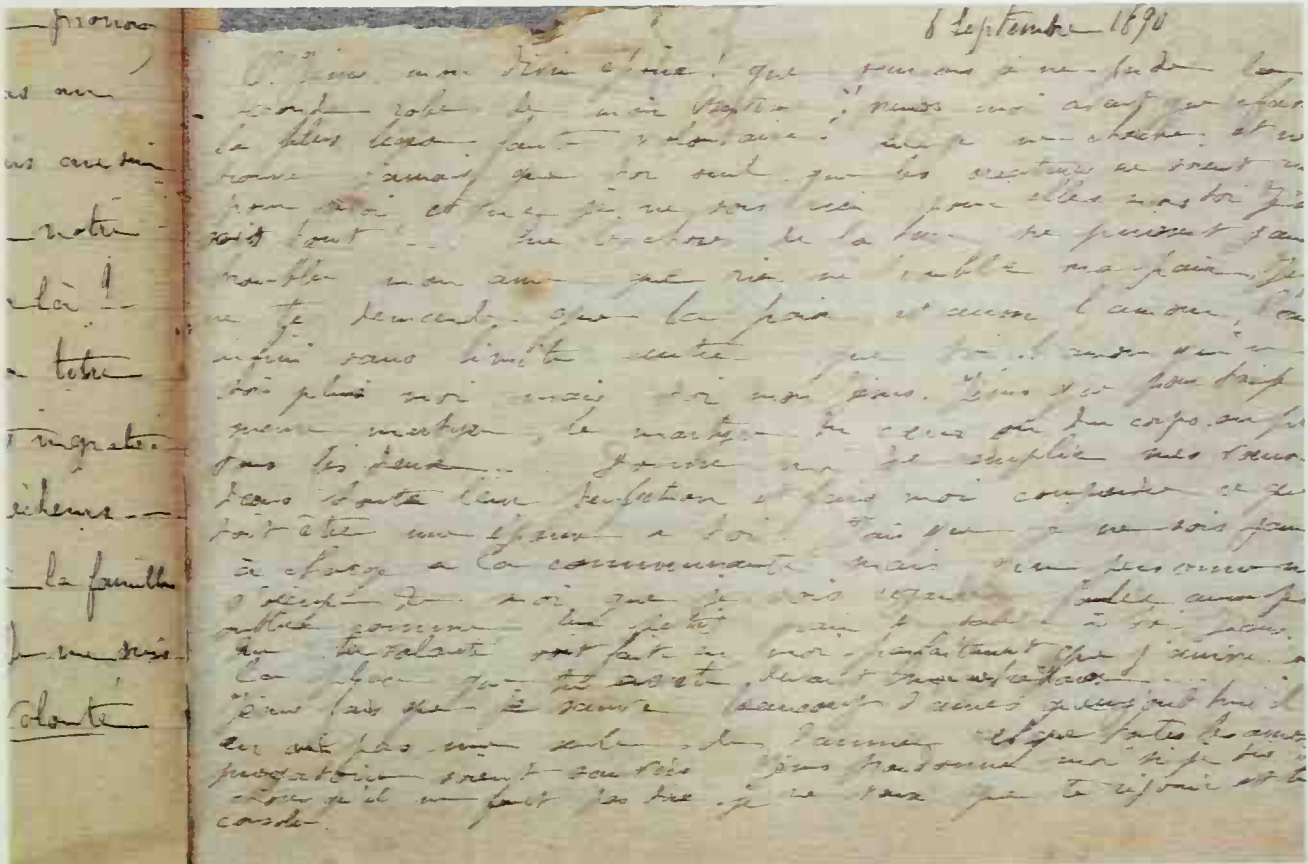 pronon
as an
notre
là !
titre
à la famille
je me suis
volonté
8 Septembre 1890
O Jésus mon divin époux ! que jamais je ne perde la
seconde robe de mon Baptême ! prends moi avant que je fasse
la plus légère faute volontaire. Que je ne cherche et ne
trouve jamais que toi seul que les créatures ne soient
pour moi et que je ne sois rien pour elles mais toi
sois tout !... Que les choses de la terre ne puissent jam
troubler mon âme que rien ne trouble ma paix, Jé
ne te demande que la paix et aussi l'amour, l'
infini sans limite autre que toi l'amour qui
sois plus moi mais toi mon Jésus. Jésus que pour toi je
meure martyre, le martyre du cœur ou du corps ou pl
tous les deux... Donne moi de remplir mes vœux
dans toute leur perfection et fais moi comprendre ce que
doit être une épouse a toi. Fais que je ne sois jam
à charge a la communauté mais que personne n
s'occupe de moi que je sois foulée aux p
oubliée comme un petit grain de sable à toi Jésus.
Que ta volonté soit faite en moi parfaitement que j'arrive a
la place que tu devant
Jésus fais que je sauve beaucoup d'âmes qu'aujourd'hui il
en ait pas une seule de damnée et que toutes les âmes
purgatoire soient sauvées Jésus pardonne moi si je dis
choses qu'il ne faut pas dire je ne veux que te réjouir et te
consoler.